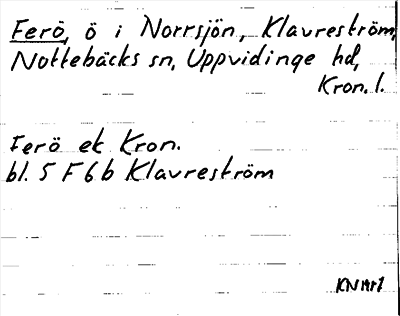 Ferö, ö i Norrsjön, Klavreström,
Nottebäcks sn, Uppvidinge hd,
Kron. l.
Ferö ek Kron.
bl. 5 F 6 b Klavreström